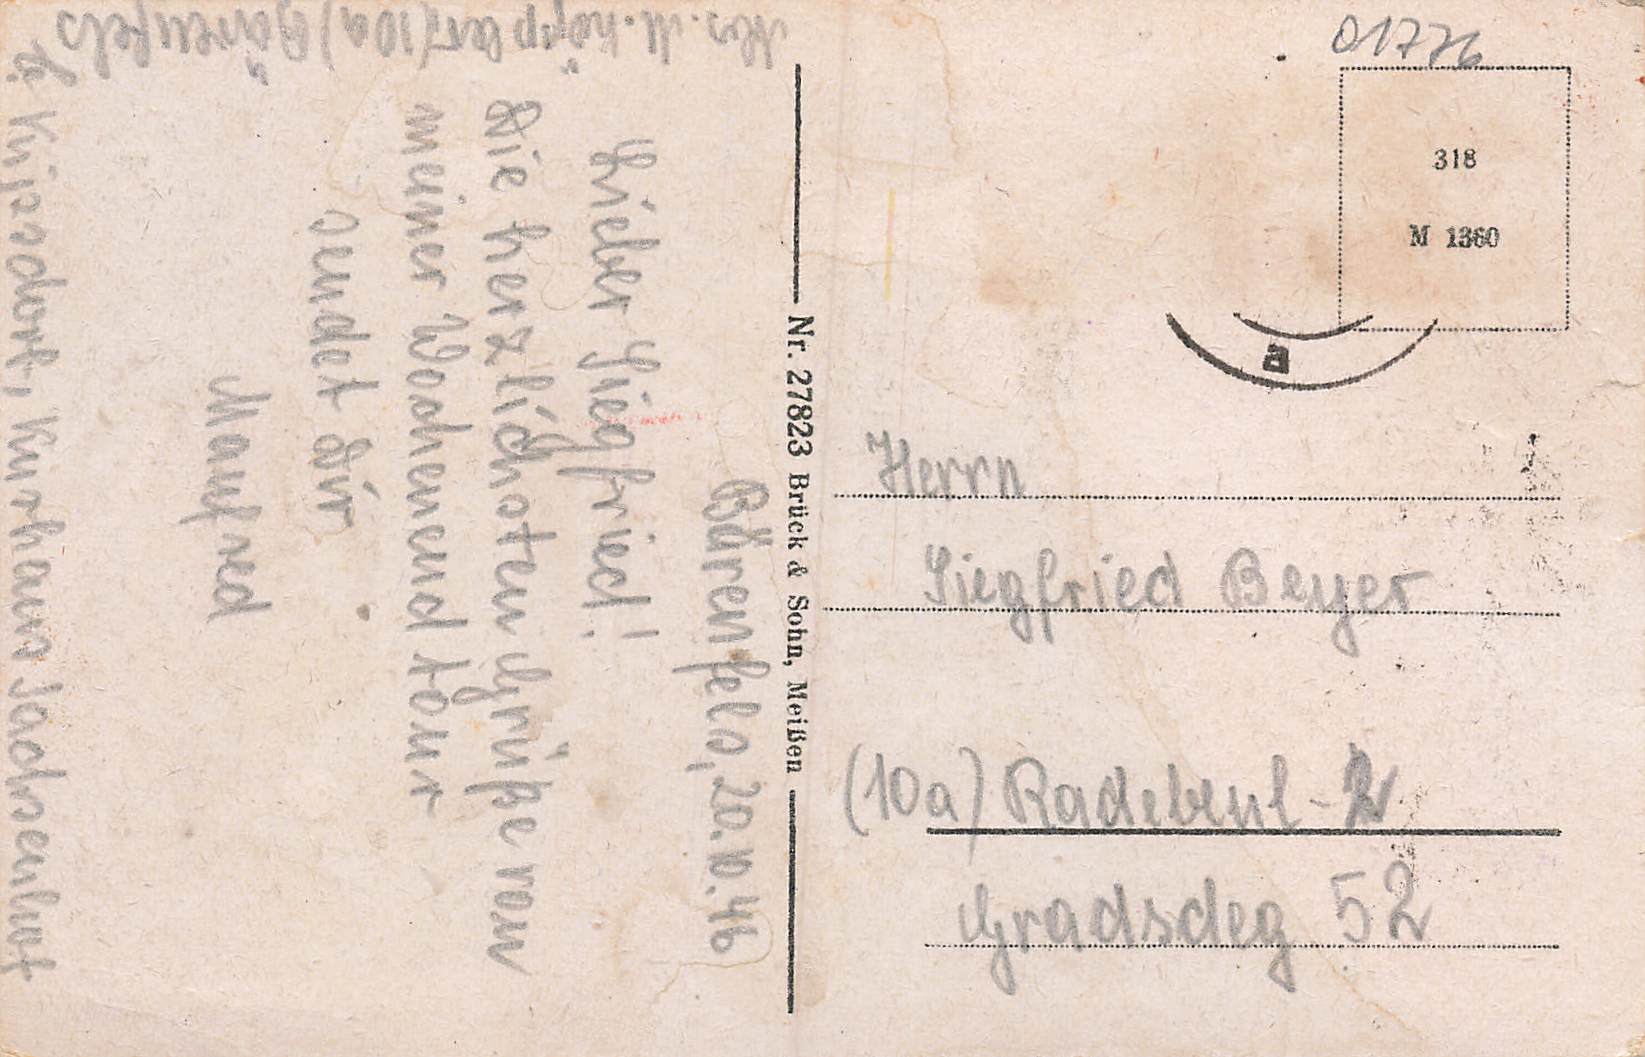 01776
318
M 1360
a
Nr. 27823 Brück & Sohn, Meißen
Bärenfels, 20.10.46
Lieber Siegfried!
Die herzlichsten Grüße von
meiner Wochenendtour
sendet Dir
Manfred
Kipsdorf, Kurhaus Sachsenhof
Abs. M. (10a) Bärenfels
Herrn
Siegfried Beyer
(10a) Radebeul-2
Gradsdeg 52